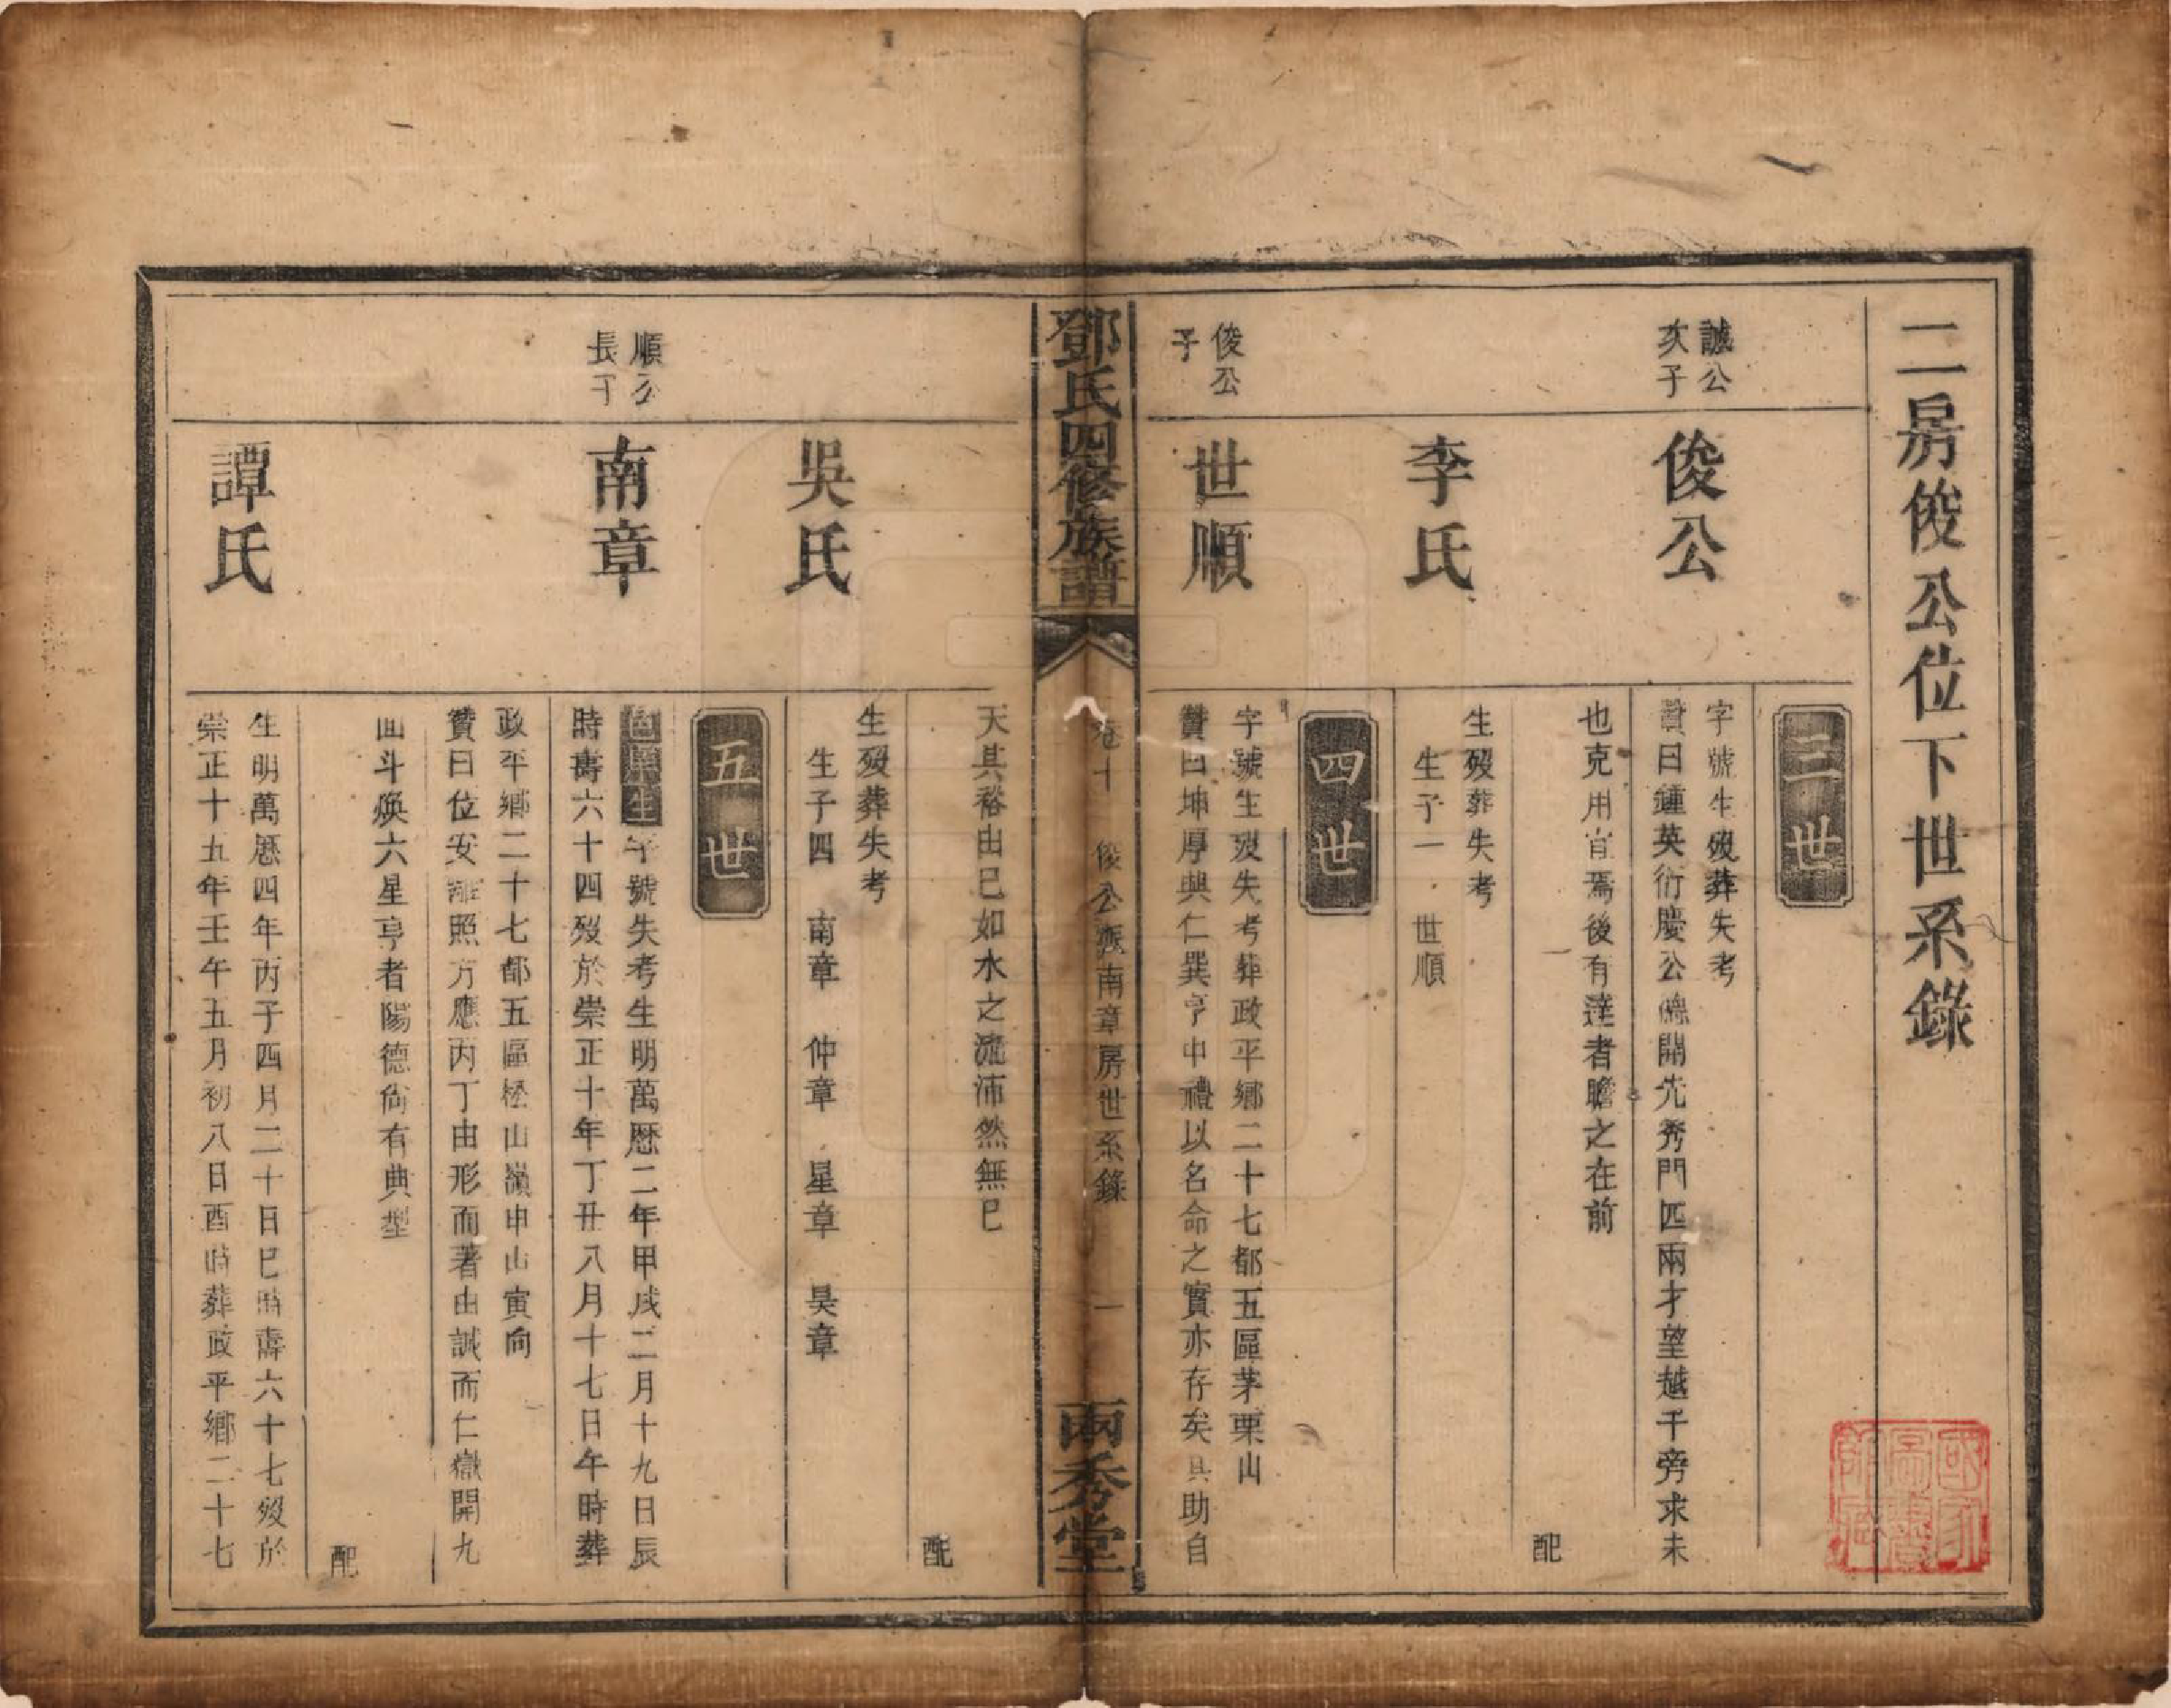 二房俊公位下世系錄
三世
誠公
次子
俊公
字號生歿葬失考
贊曰鍾英衍慶公開先秀門匹兩才望越千旁求未
也克用宜焉後有達者瞻之在前
配
李氏
生歿葬失考
生子一 世順
四世
俊公
子
世順
字號生歿失考葬政平鄉二十七都五區茅栗山
贊曰坤厚與仁巽亨中禮以名命之實亦存矣具助自
鄧氏四修族譜
卷十 俊公派南章房世系錄 一
兩秀堂
天其裕由己如水之流沛然無已
配
吳氏
生歿葬失考
生子四 南章 仲章 星章 昊章
五世
順公
長子
南章
邑庠生字號失考生明萬歷二年甲戌二月十九日辰
時壽六十四歿於崇正十年丁丑八月十七日午時葬
政平鄉二十七都五區松山嶺申山寅向
贊曰位安離照方應丙丁由形而著由誠而仁嶽開九
面斗煥六星亨者陽德尚有典型
配
譚氏
生明萬歷四年丙子四月二十日巳時壽六十七歿於
崇正十五年壬午五月初八日酉時葬政平鄉二十七